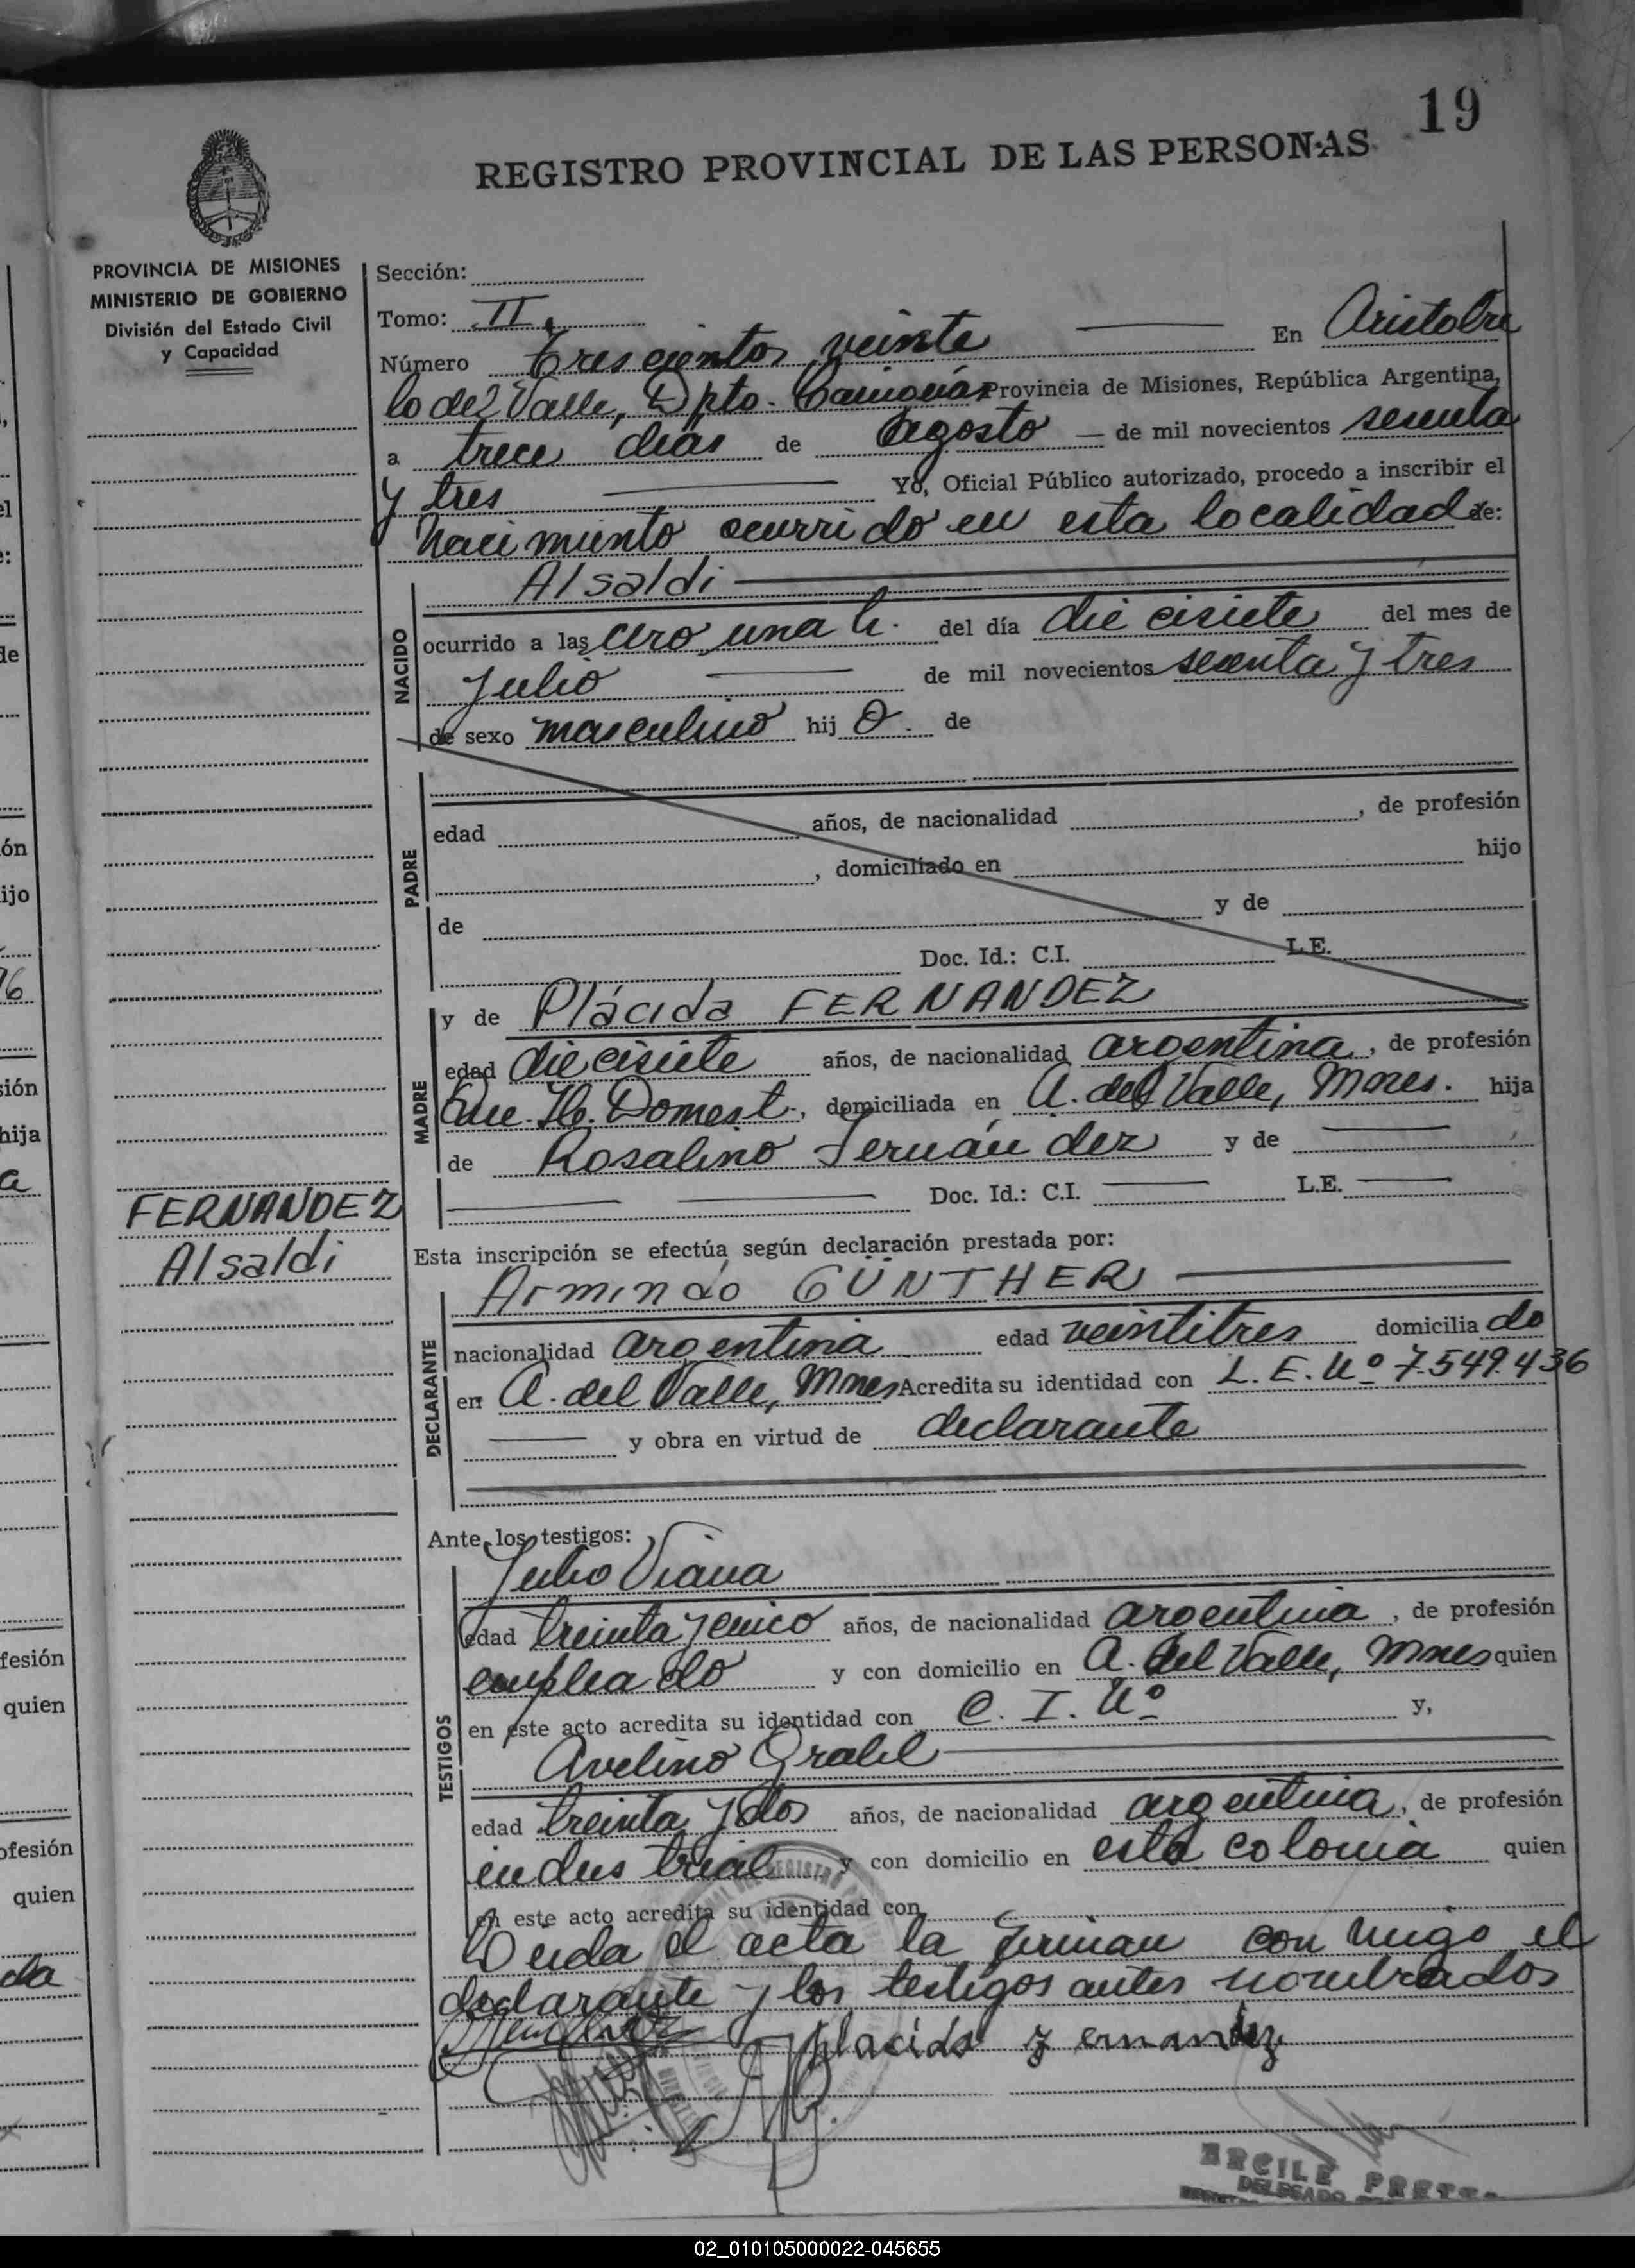 19
REGISTRO PROVINCIAL DE LAS PERSONAS
PROVINCIA DE MISIONES
MINISTERIO DE GOBIERNO
División del Estado Civil
y Capacidad
Sección:
Tomo: II.
Número Trescientos veinte En Aristobu
lo del Valle, Dpto. Cainguás Provincia de Misiones, República Argentina,
a trece dias de Agosto de mil novecientos sesenta
y tres Yo, Oficial Público autorizado, procedo a inscribir el
Nacimiento ocurrido en esta localidad de:
NACIDO
Alsaldi
ocurrido a las cero una h. del día diecisiete del mes de
Julio de mil novecientos sesenta y tres
de sexo masculino hij o. de
PADRE
edad años, de nacionalidad , de profesión
, domiciliado en hijo
de y de
Doc. Id.: C.I. L.E.
MADRE
y de Plácida FERNANDEZ
edad diecisiete años, de nacionalidad argentina, de profesión
Domest., domiciliada en A. del Valle, Mnes. hija
de Rosalino Fernández y de
Doc. Id.: C.I. L.E.
FERNANDEZ
Alsaldi
Esta inscripción se efectúa según declaración prestada por:
DECLARANTE
Armindo GÜNTHER
nacionalidad argentina edad veintitres domicilia do
en A. del Valle, Mnes Acredita su identidad con L.E. Nº 7.549.436
y obra en virtud de declarante
Ante los testigos:
TESTIGOS
Julio Viana
edad treinta y cinco años, de nacionalidad argentina, de profesión
empleado y con domicilio en A. del Valle, Mnes quien
en este acto acredita su identidad con C. I. Nº y,
Avelino Grabel
edad treinta y dos años, de nacionalidad argentina, de profesión
industrial y con domicilio en esta colonia quien
en este acto acredita su identidad con
Leida el acta la firman con migo el
declarante y los testigos antes nombrados
placida Fernandez
ARCILE PRETTO
DELEGADO
02_010105000022-045655